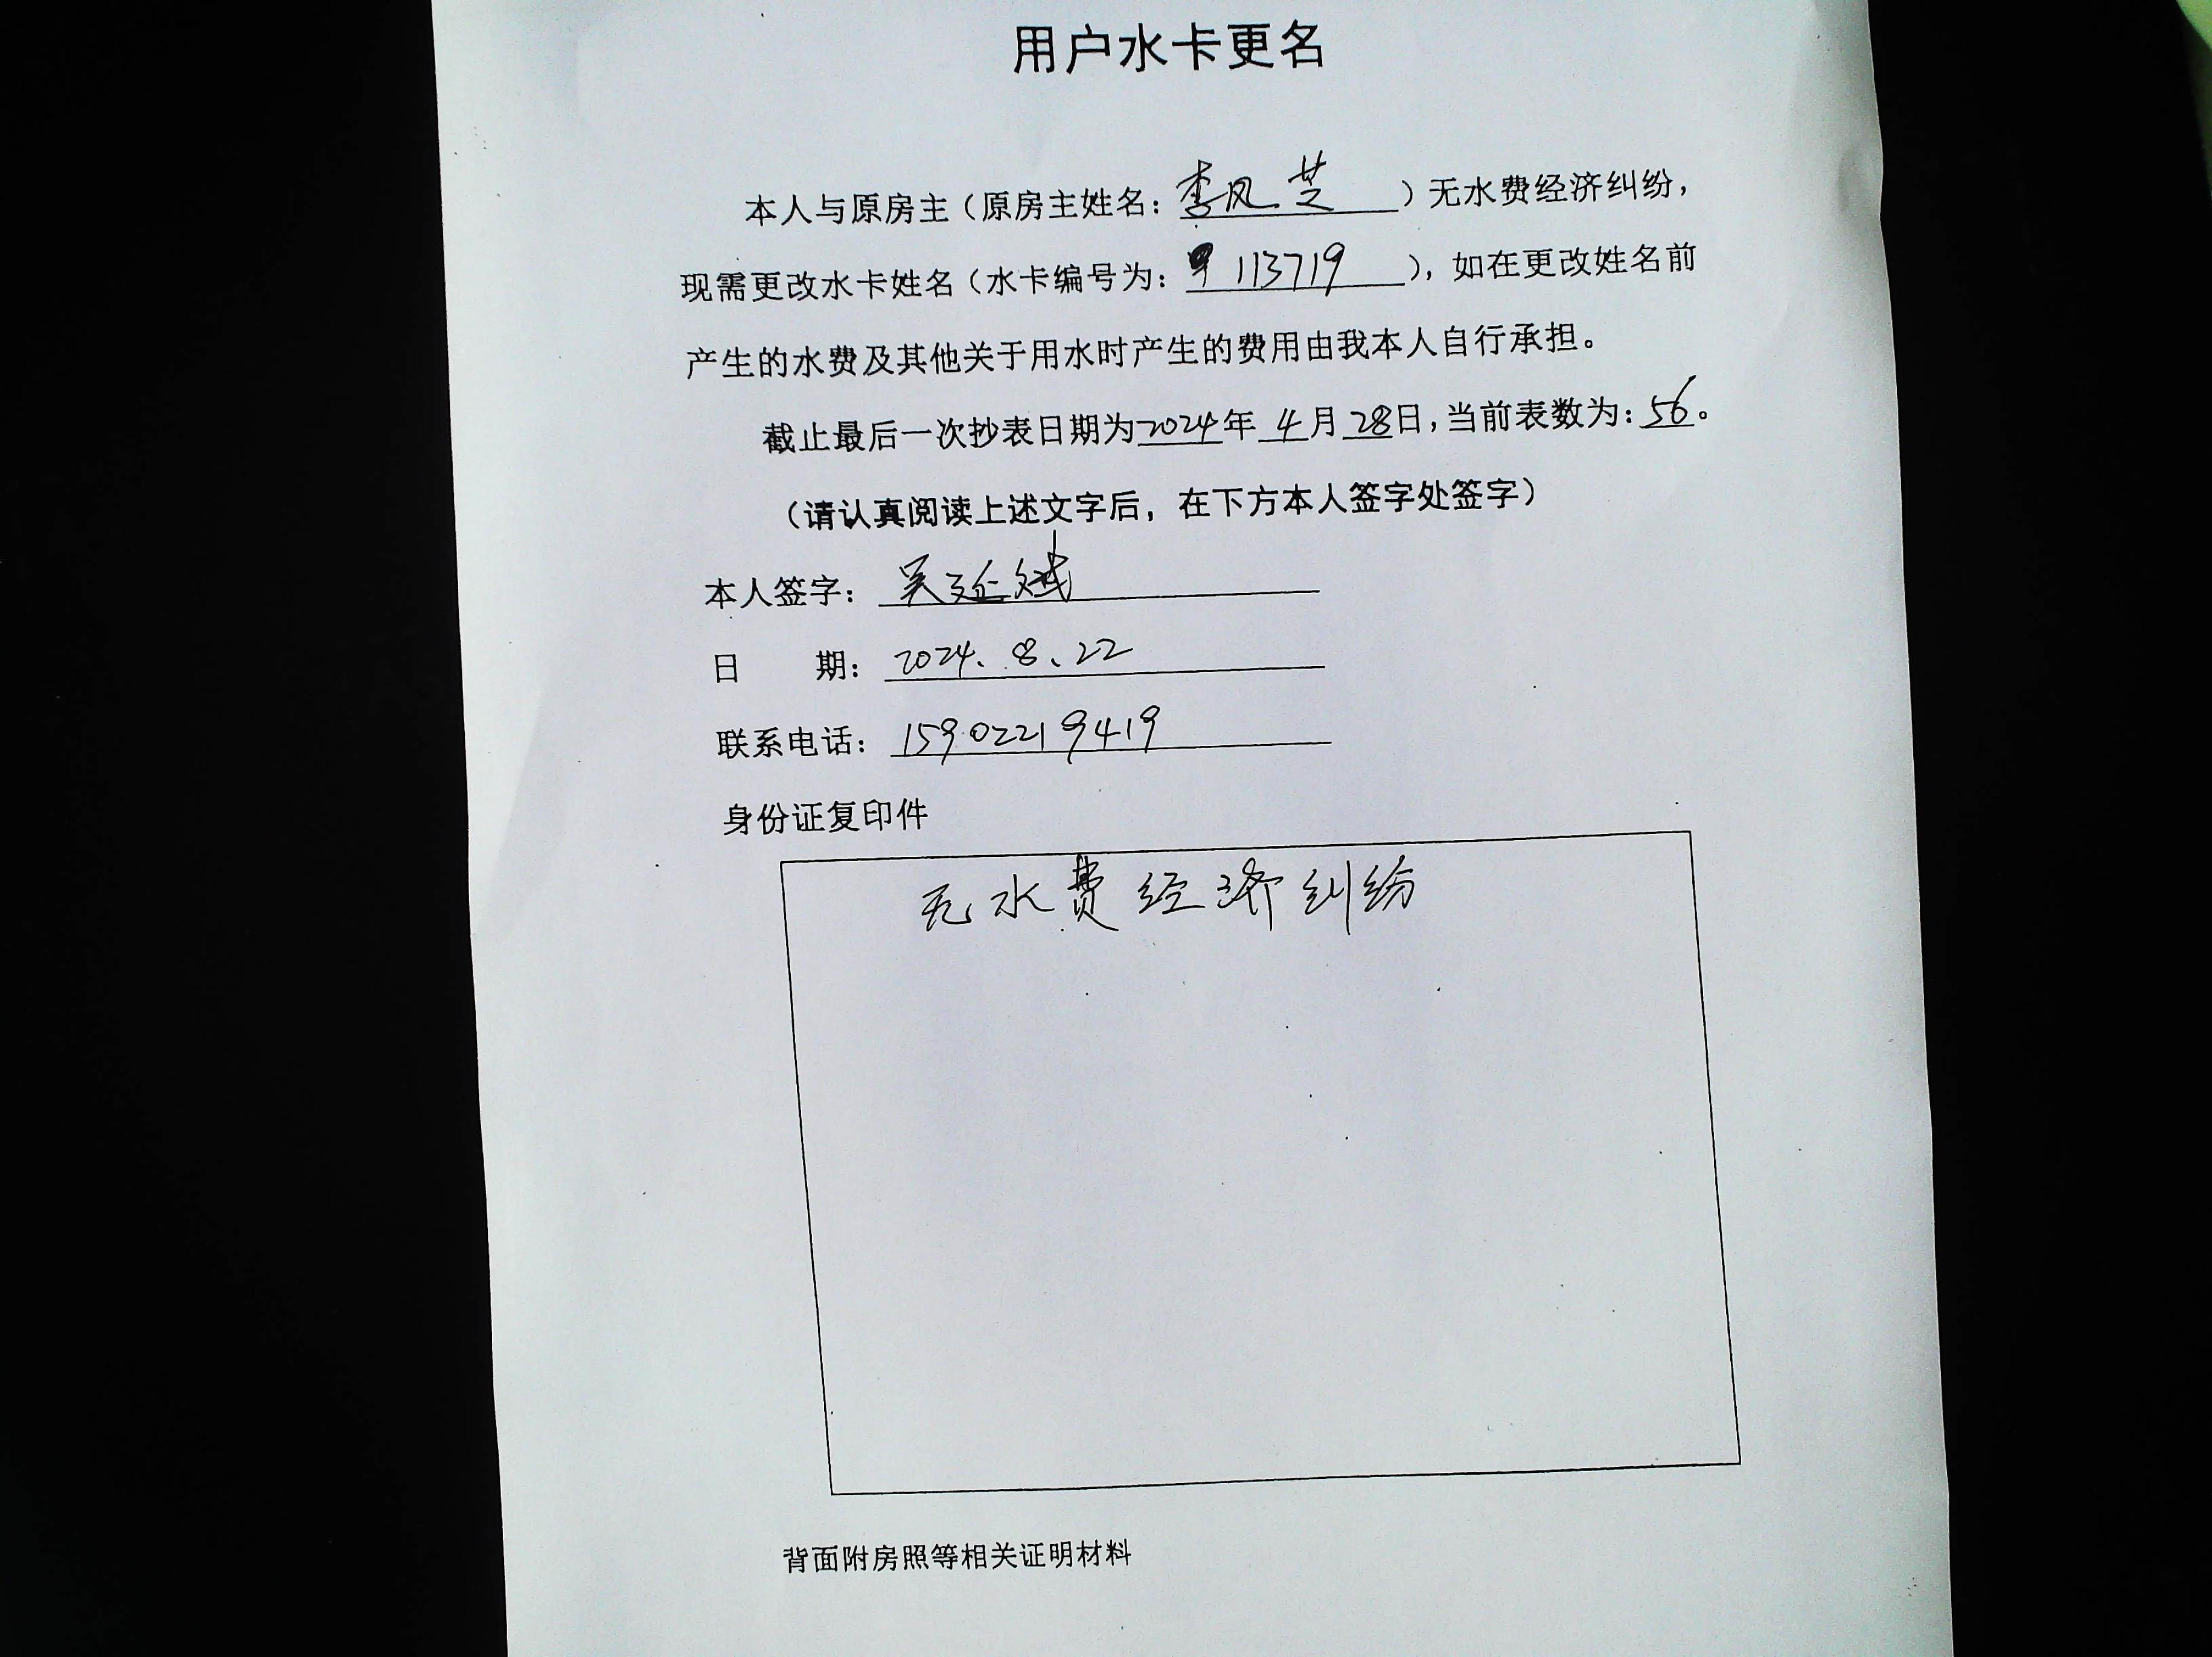 用户水卡更名
本人与原房主（原房主姓名：李凤芝）无水费经济纠纷，
现需更改水卡姓名（水卡编号为：113719），如在更改姓名前
产生的水费及其他关于用水时产生的费用由我本人自行承担。
截止最后一次抄表日期为2024年4月28日，当前表数为：56。
（请认真阅读上述文字后，在下方本人签字处签字）
本人签字：吴延斌
日 期：2024.8.22
联系电话：15902219419
身份证复印件
无水费经济纠纷
背面附房照等相关证明材料